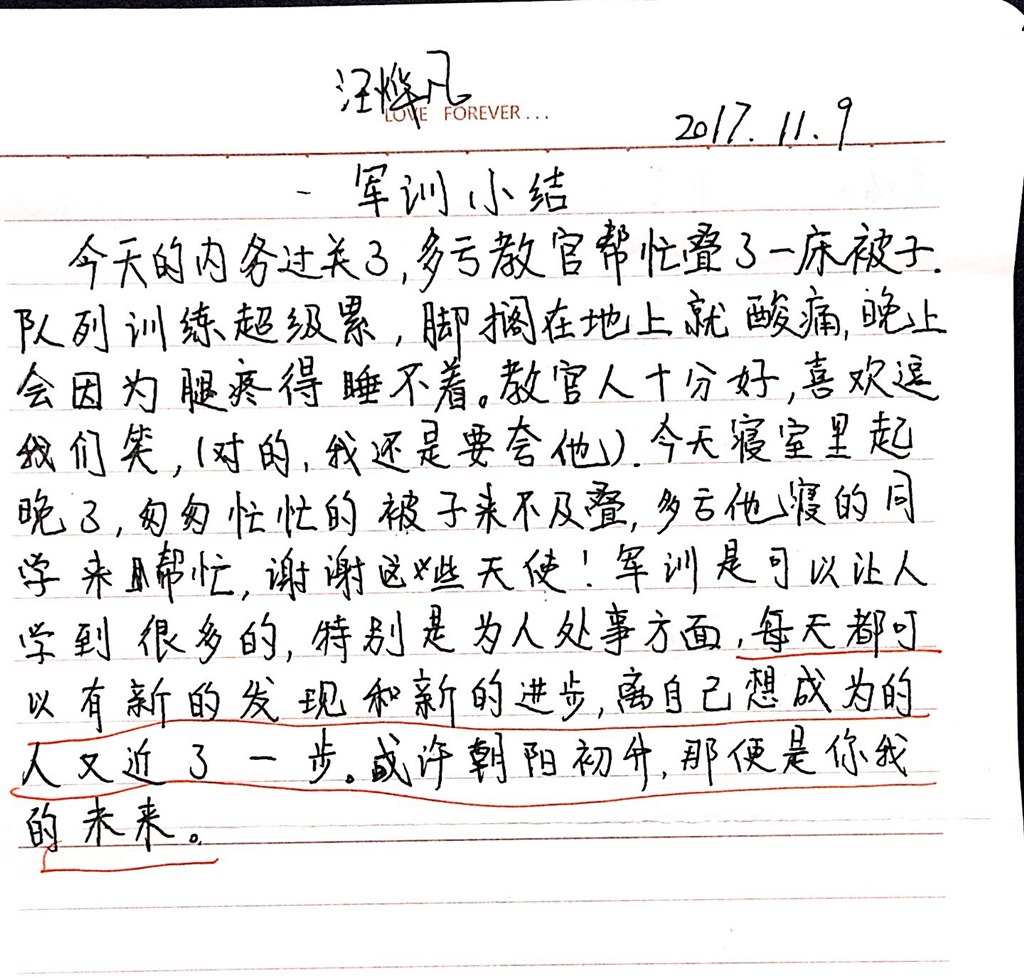 汪烨凡
LOVE FOREVER...
2017.11.9
- 军训小结
今天的内务过关了,多亏教官帮忙叠了一床被子.
队列训练超级累,脚搁在地上就酸痛,晚上
会因为腿疼得睡不着。教官人十分好,喜欢逗
我们笑,(对的,我还是要夸他).今天寝室里起
晚了,匆匆忙忙的被子来不及叠,多亏他寝的同
学来帮忙,谢谢这些天使!军训是可以让人
学到很多的,特别是为人处事方面,每天都可
以有新的发现和新的进步,离自己想成为的
人又近了一步。或许朝阳初升,那便是你我
的未来。